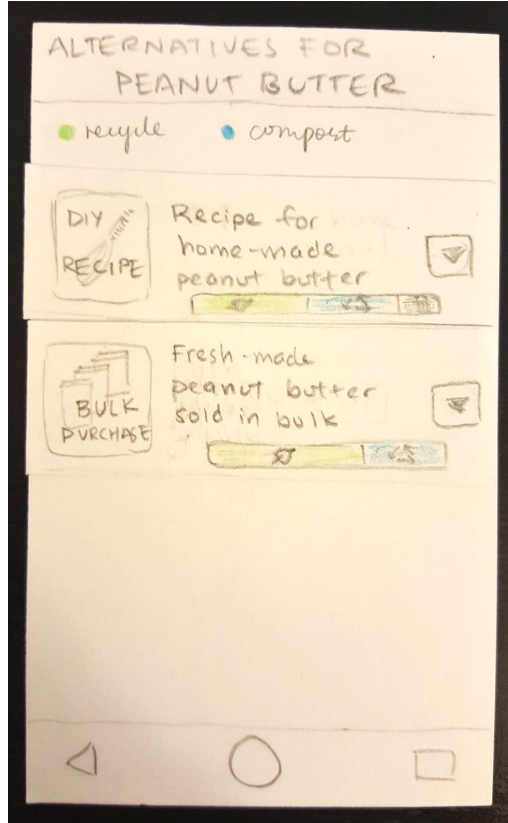 ALTERNATIVES FOR
PEANUT BUTTER
recycle
compost
DIY
RECIPE
Recipe for
home-made
peanut butter
BULK
PURCHASE
Fresh-made
peanut butter
sold in bulk